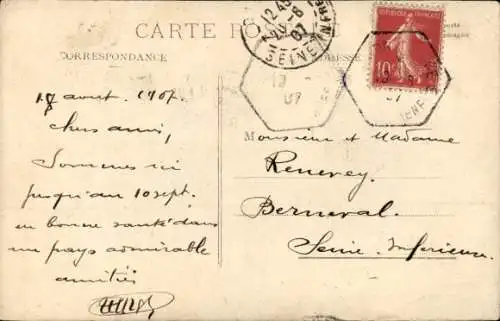 CARTE POSTALE
CORRESPONDANCE
ADRESSE
12 45
-8
07
SEINE
REPUBLIQUE FRANÇAISE
10
12 -
07
août 1907.
Chers amis,
Sommes ici
jusqu'au 10 sept.
en bonne santé dans
un pays admirable
amitiés
Monsieur et Madame
Renevey
Berneval
Seine Inférieure